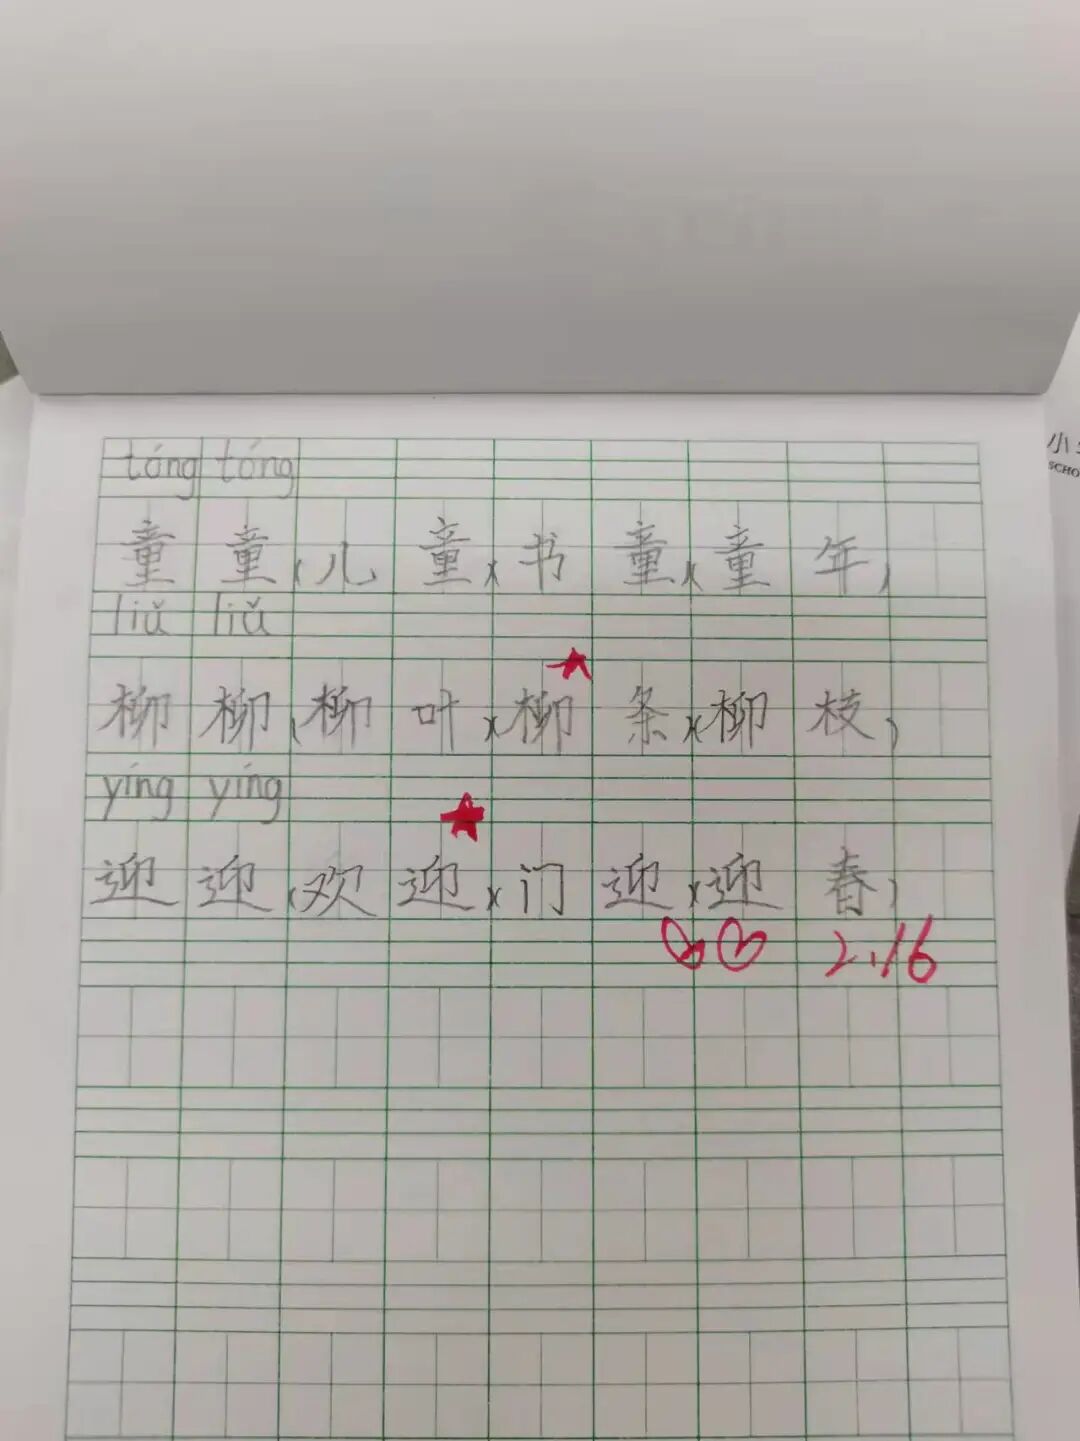 tóng tóng
童童(儿童)(书童)(童年)
liǔ liǔ
柳柳(柳叶)(柳条)(柳枝)
yíng yíng
迎迎(欢迎)(门迎)(迎春)
2.16
小
SCHO